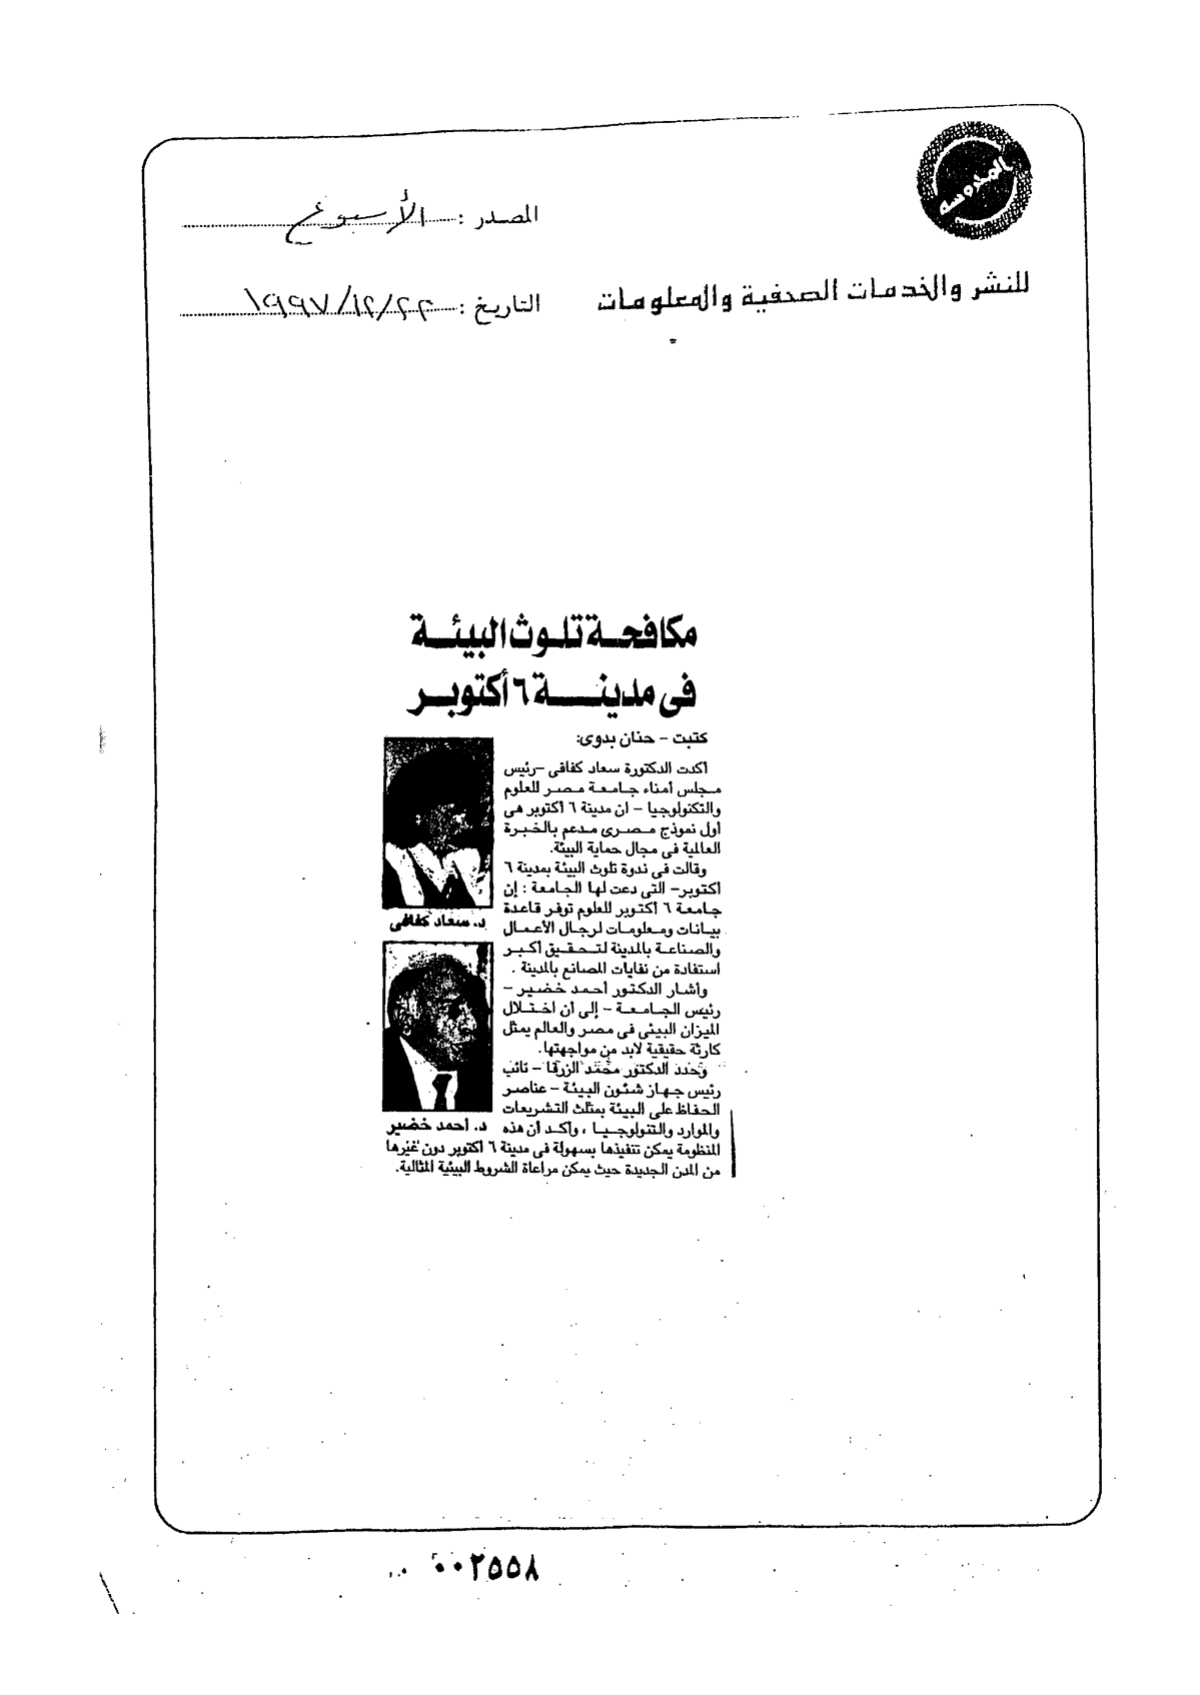 المدوسه
للنشر والخدمات الصحفية والمعلومات
المصدر : الأسبوع
التاريخ : ٢٢/١٢/١٩٩٧
مكافحة تلوث البيئة
فى مدينة ٦ أكتوبر
كتبت - حنان بدوى:
أكدت الدكتورة سعاد كفافى - رئيس
مجلس أمناء جامعة مصر للعلوم
والتكنولوجيا - ان مدينة ٦ أكتوبر هى
أول نموذج مصرى مدعم بالخبرة
العالمية فى مجال حماية البيئة.
وقالت فى ندوة تلوث البيئة بمدينة ٦
أكتوبر - التى دعت لها الجامعة : إن
جامعة ٦ أكتوبر للعلوم توفر قاعدة
بيانات ومعلومات لرجال الأعمال
والصناعة بالمدينة لتحقيق أكبر
استفادة من نفايات المصانع بالمدينة .
وأشار الدكتور أحمد خضير -
رئيس الجامعة - إلى أن اختلال
الميزان البيئى فى مصر والعالم يمثل
كارثة حقيقية لابد من مواجهتها.
وحدد الدكتور محمد الزرقا - نائب
رئيس جهاز شئون البيئة - عناصر
الحفاظ على البيئة بمثلث التشريعات
والموارد والتنولوجيا ، وأكد أن هذه
المنظومة يمكن تنفيذها بسهولة فى مدينة ٦ أكتوبر دون غيرها
من المدن الجديدة حيث يمكن مراعاة الشروط البيئية المثالية.
د. سعاد كفافى
د. أحمد خضير
٠٠٢٥٥٨